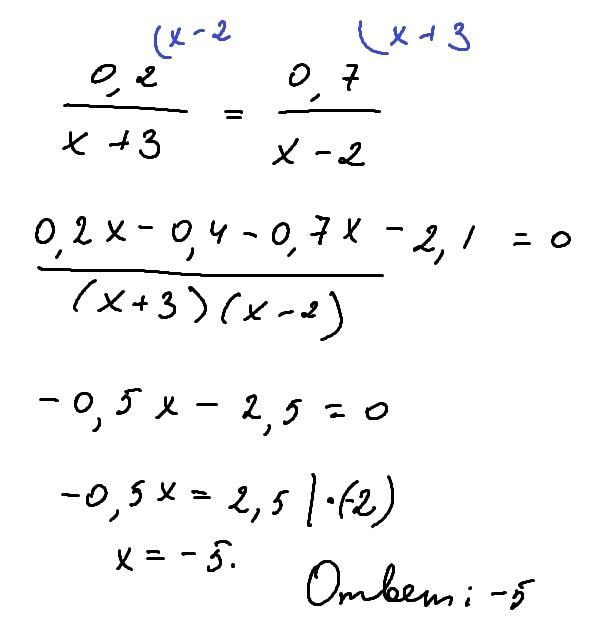 (x-2 (x+3
0,2 = 0,7
x+3 x-2
0,2x - 0,4 - 0,7x - 2,1 = 0
(x+3)(x-2)
-0,5x - 2,5 = 0
-0,5x = 2,5 |·(-2)
x = -5.
Ответ: -5